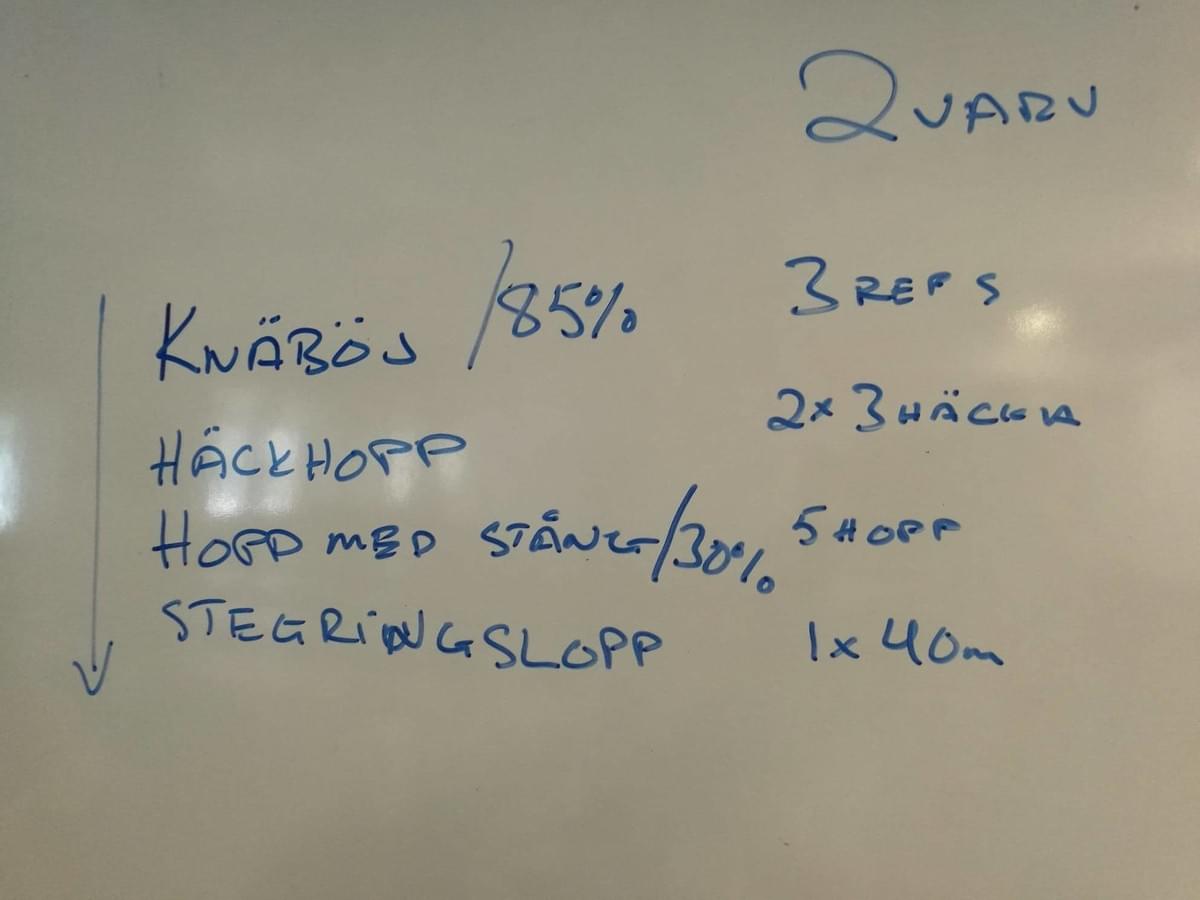 2 VARV
KNÄBÖJ /85% 3 REPS
HÄCKHOPP 2x3 HÄCKA
HOPP MED STÅNG/30% 5 HOPP
STEGRINGSLOPP 1x40m